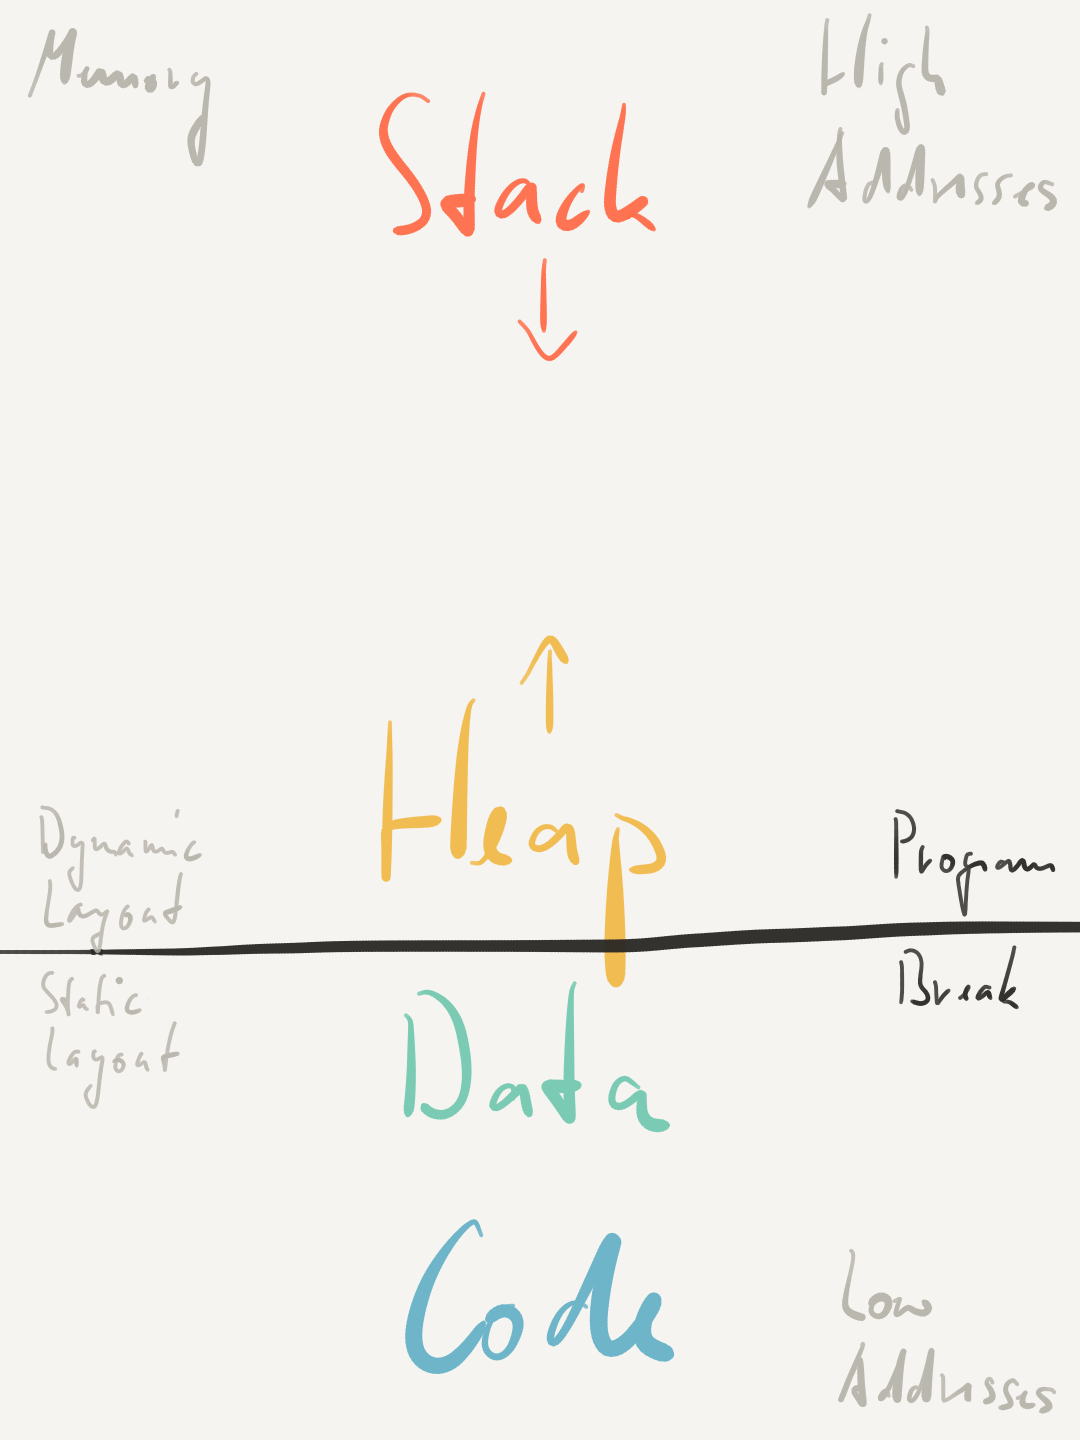 Memory
High
Addresses
Stack
Heap
Dynamic
Layout
Program
Break
Static
Layout
Data
Code
Low
Addresses